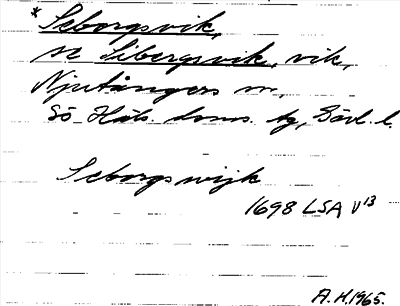 * Seborgsvik,
se Sibergsvik, vik,
Njutångers sn,
Sö Häls. doms. tg, Gävl. l.
Seborgswijk
1698 LSA V 13
A.H. 1965.